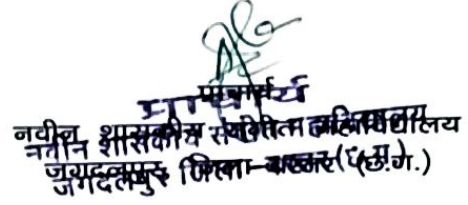 प्राचार्य
नवीन शासकीय संगीत महाविद्यालय
जगदलपुर जिला-बस्तर (छ.ग.)